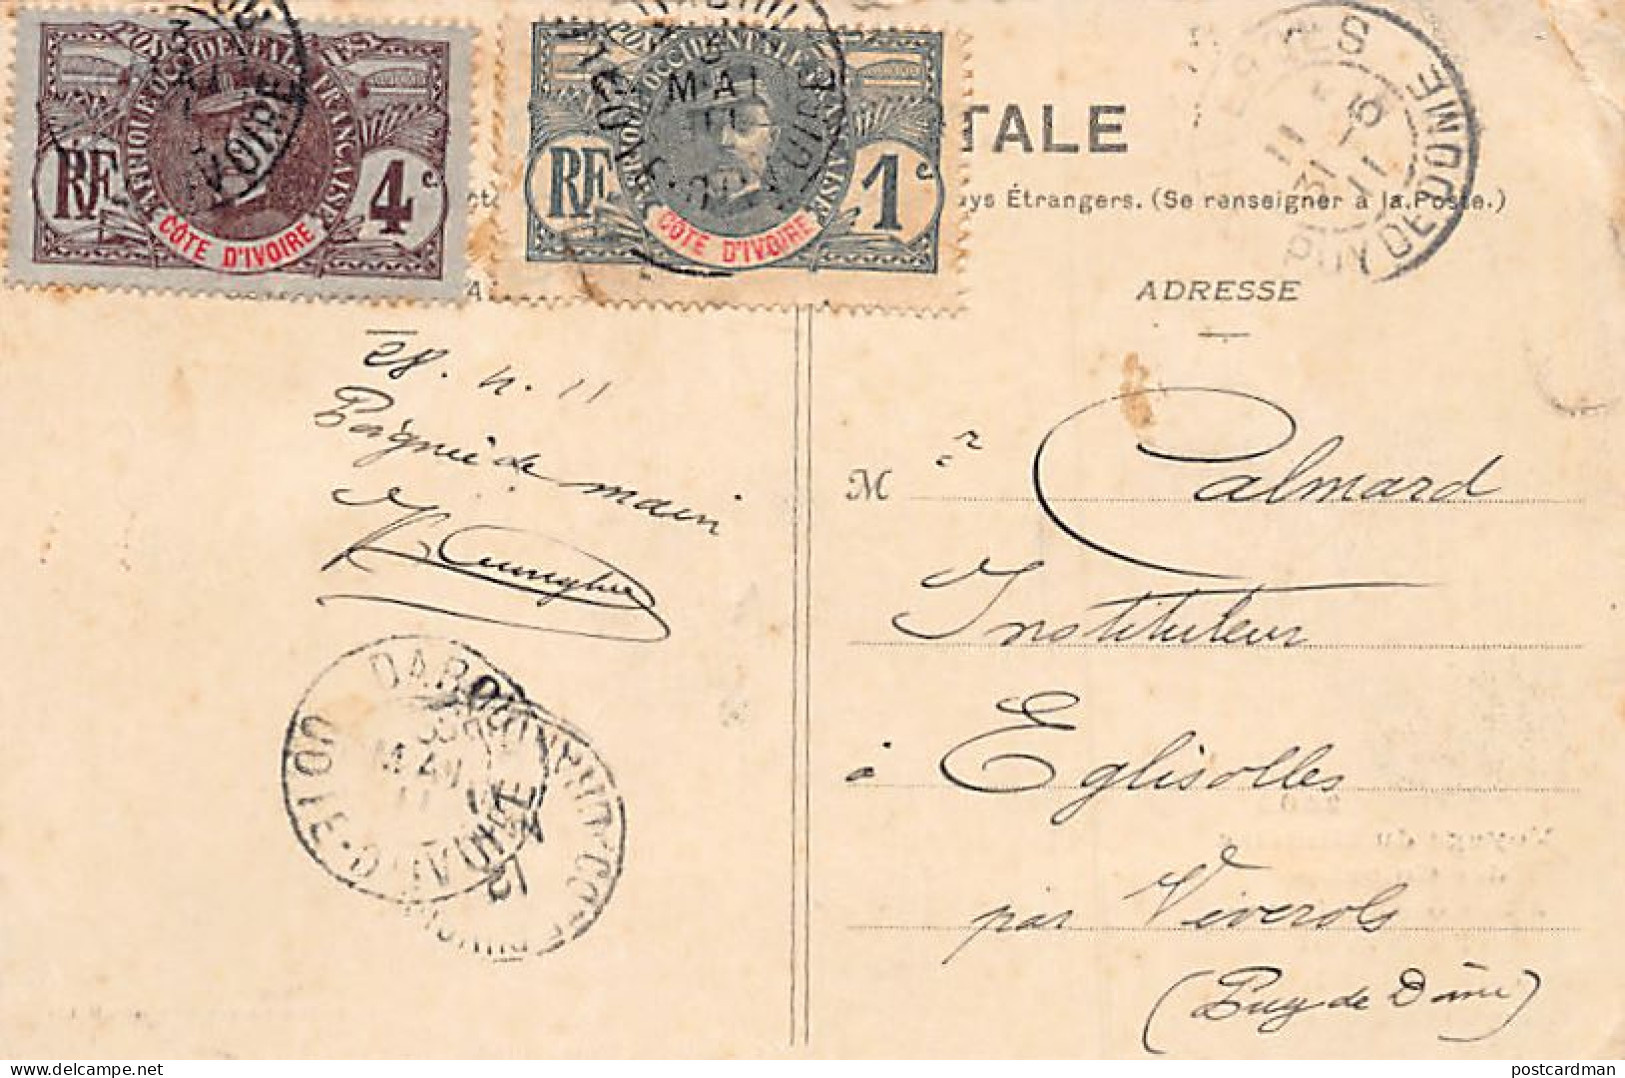 POSTES
AFRIQUE OCCIDENTALE FRANÇAISE
RF
4c
CÔTE D'IVOIRE
RF
1c
CÔTE D'IVOIRE
MAI
TALE
ys Étrangers. (Se renseigner à la Poste.)
11
31 -5
11
PUY DE DÔME
ADRESSE
28. 4. 11
Poignée de main
M r Calmard
Instituteur
à Eglisolles
par Viverols
(Puy de Dôme)
DABOU
MAI
11
COTE-D'IVOIRE
postcardman